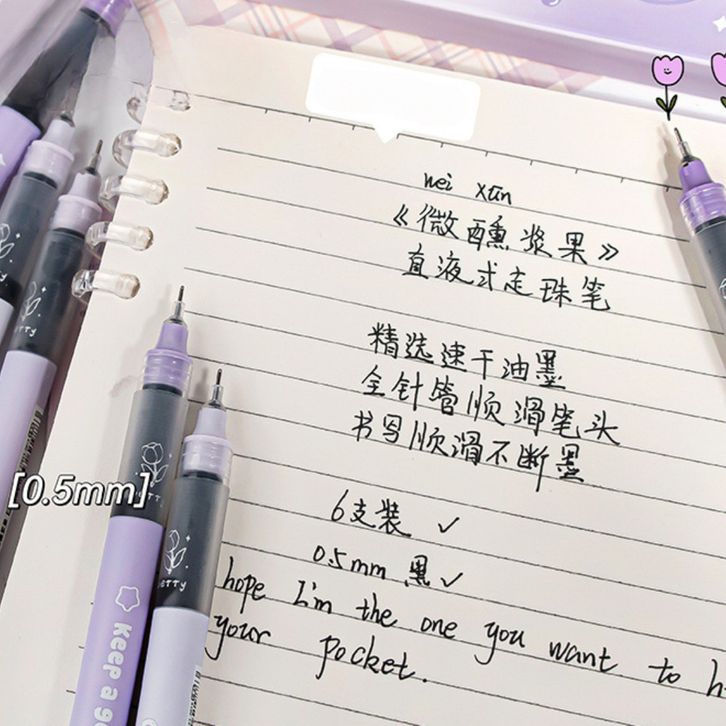 wei xūn
《微醺浆果》
直液式走珠笔
精选速干油墨
全针管顺滑笔头
书写顺滑不断墨
6支装 ✓
0.5mm 黑✓
hope I'm the one you want to
your pocket.
[0.5mm]
Keep a